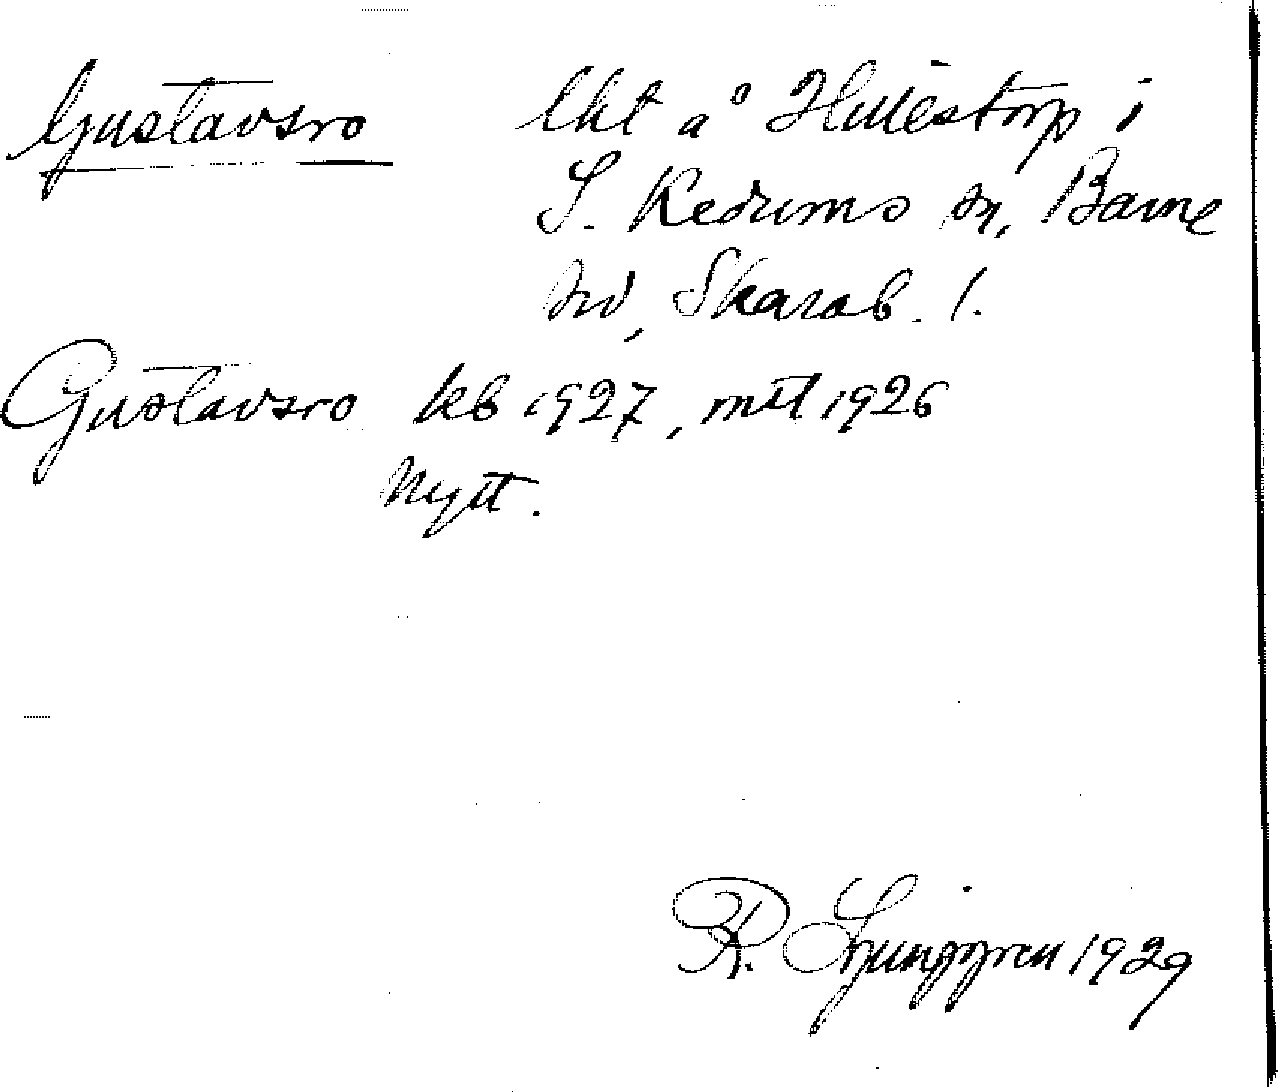 Gustavsro lht å Hillestorp i
S. Kedums sn, Barne
hd, Skarab. l.
Gustavsro kb 1927, mtl 1926
Nytt.
R. Ljunggren 1929